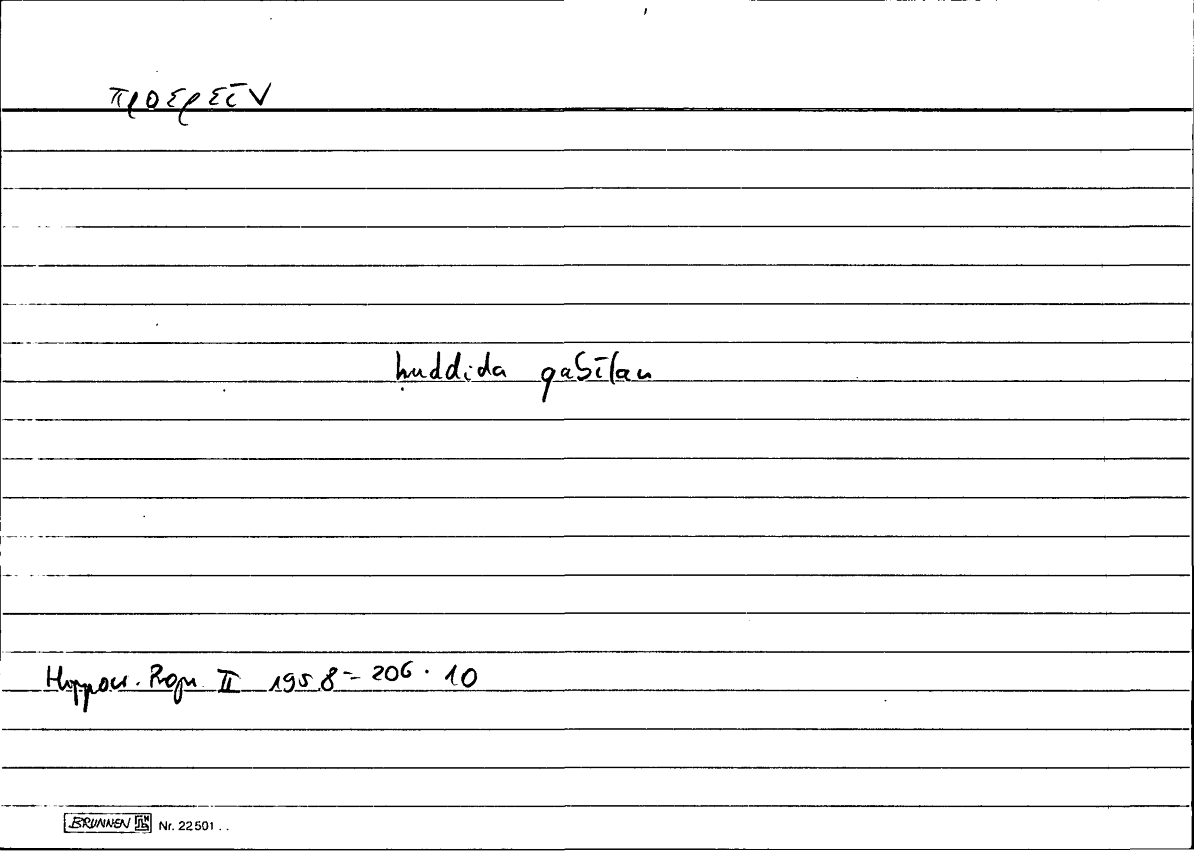 προερεῖν
ḥuddida qabīlan
Hippocr. Progn. II 195.8 = 206.10
BRUNNEN Nr. 22501 . .